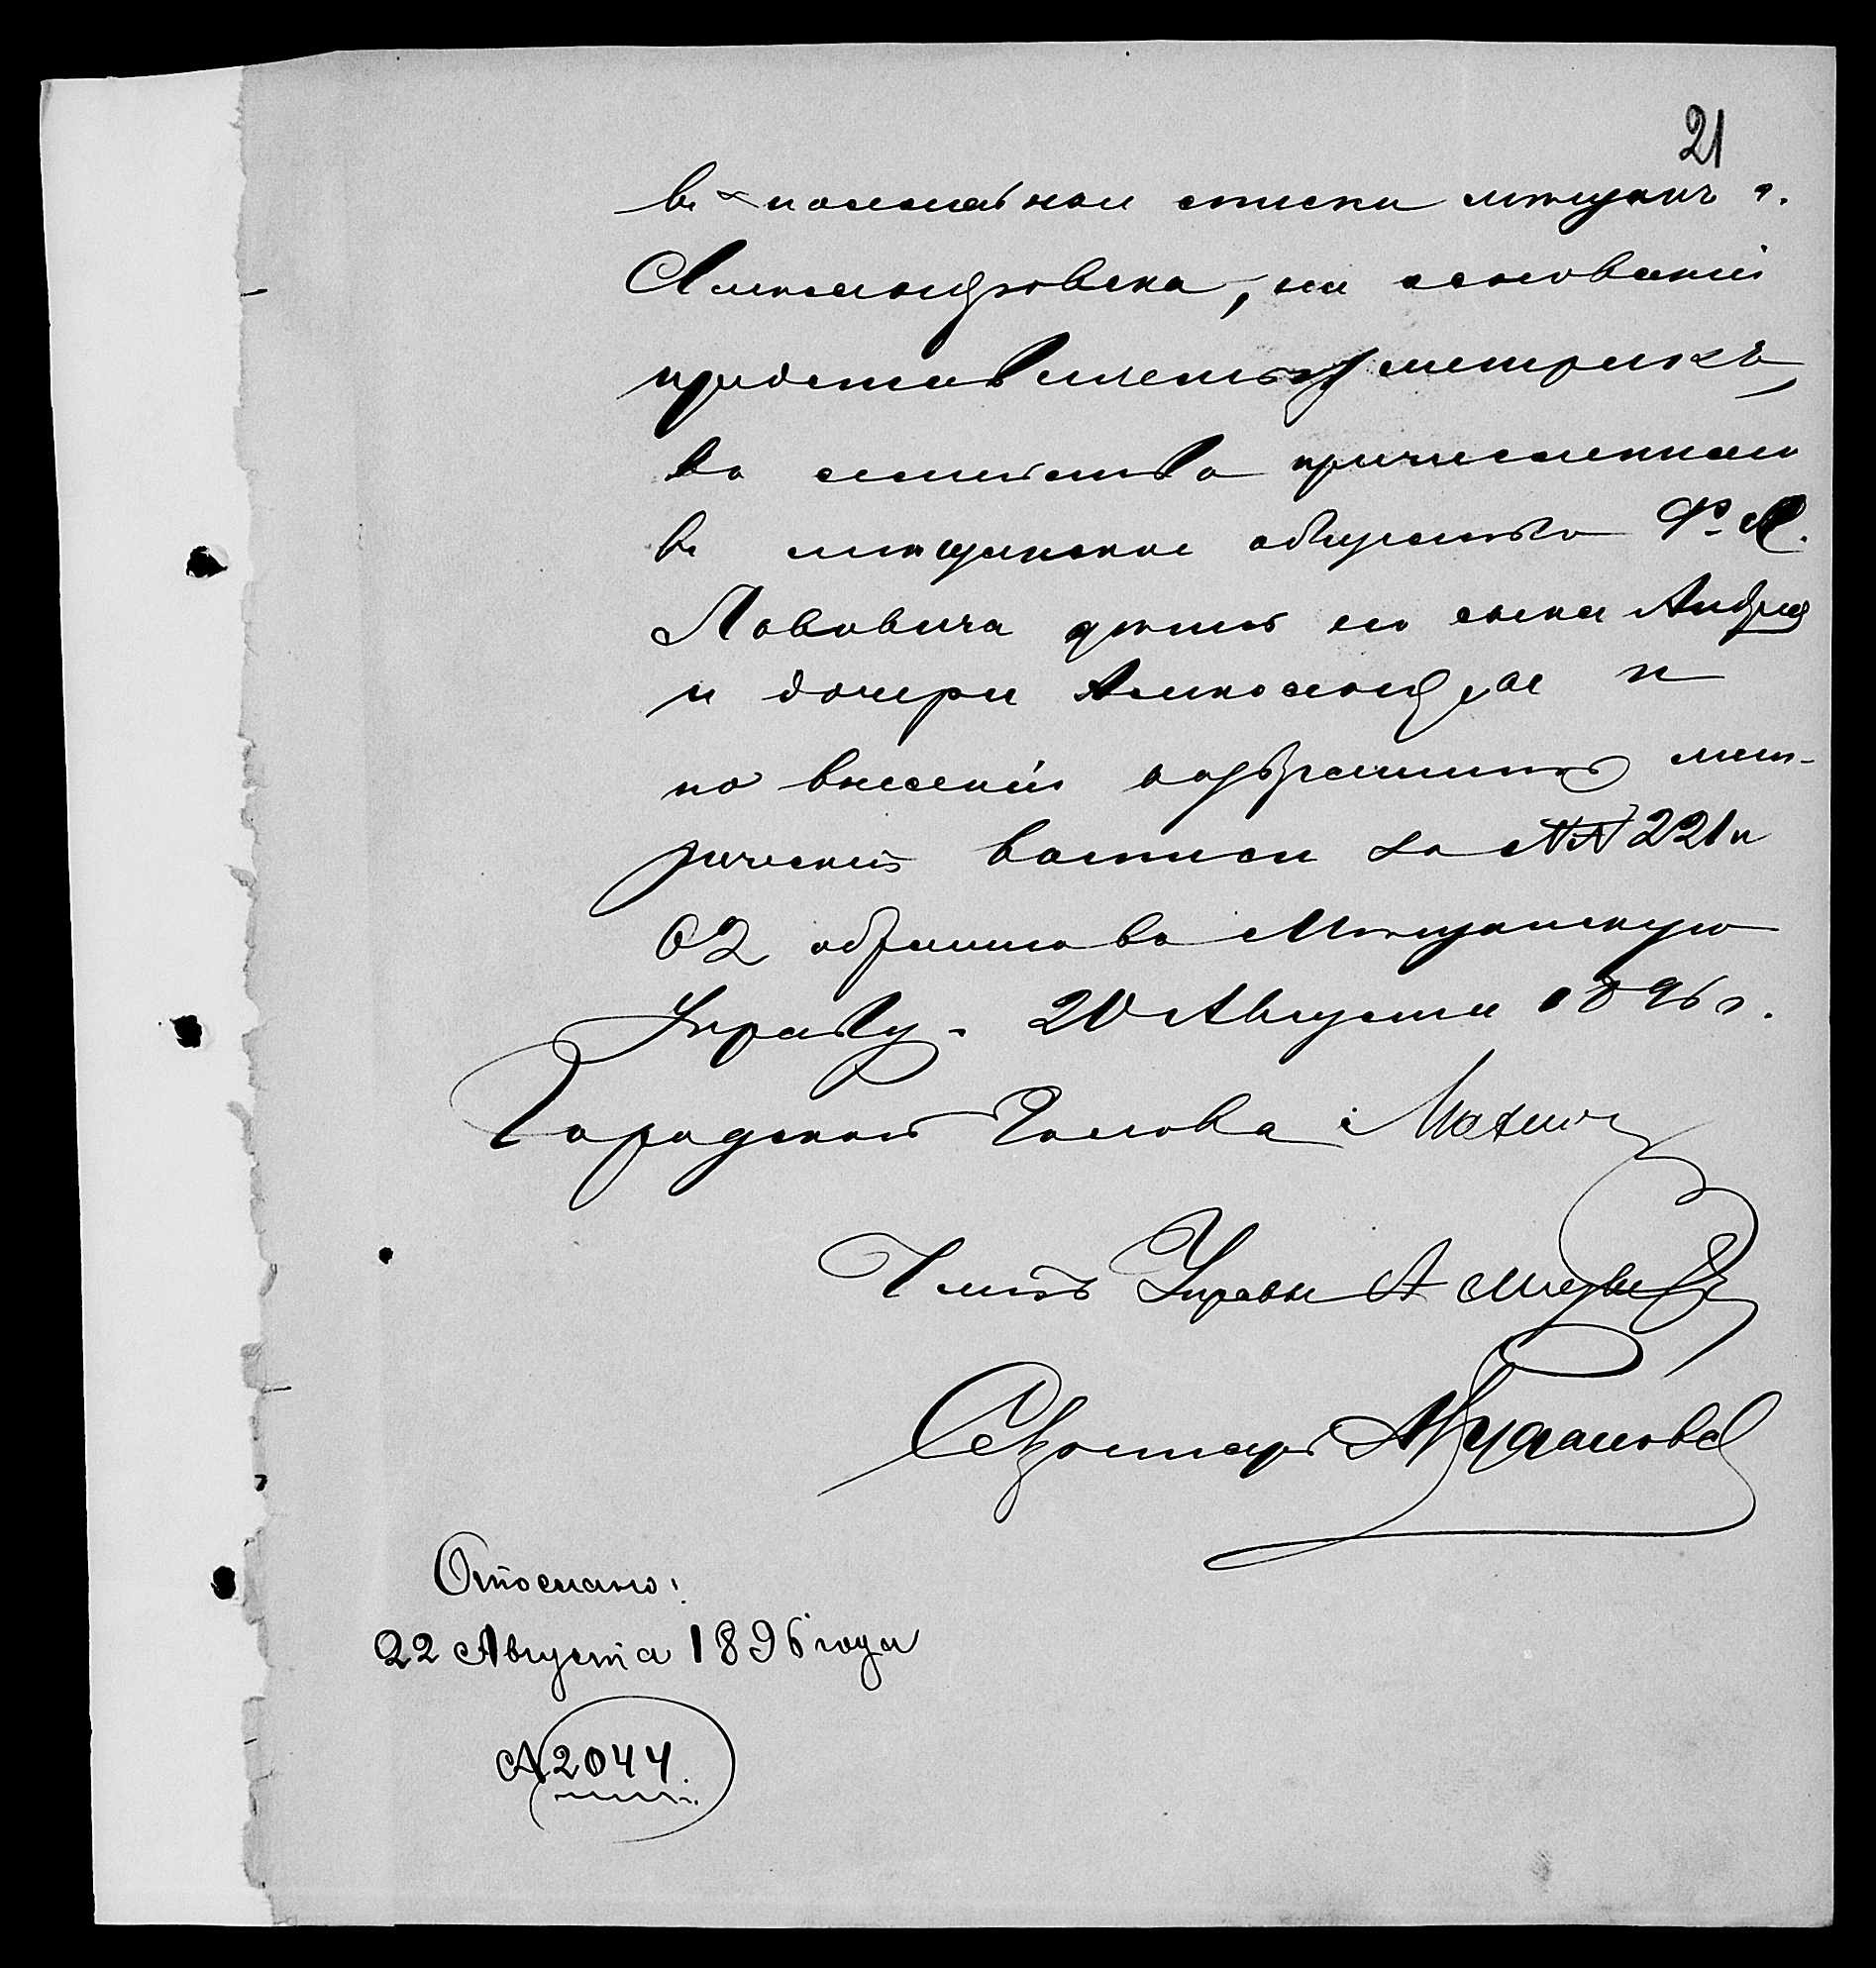 21
въ посемейные списки мѣщанъ г.
Александровска, на основаніи
представленныхъ метрикъ,
въ семейство причисленнаго
въ мѣщанское общество Ф. М.
Лововича дѣтей его сына Андрея
и дочери Александры и
по внесеніи возвратить мет-
рическія выписи за №№ 221 и
62 обратно въ Мѣщанскую
Управу. 20 Августа 1896 г.
Городской Голова
Членъ Управы А
Секретарь
Отослано:
22 Августа 1896 года
№ 2044